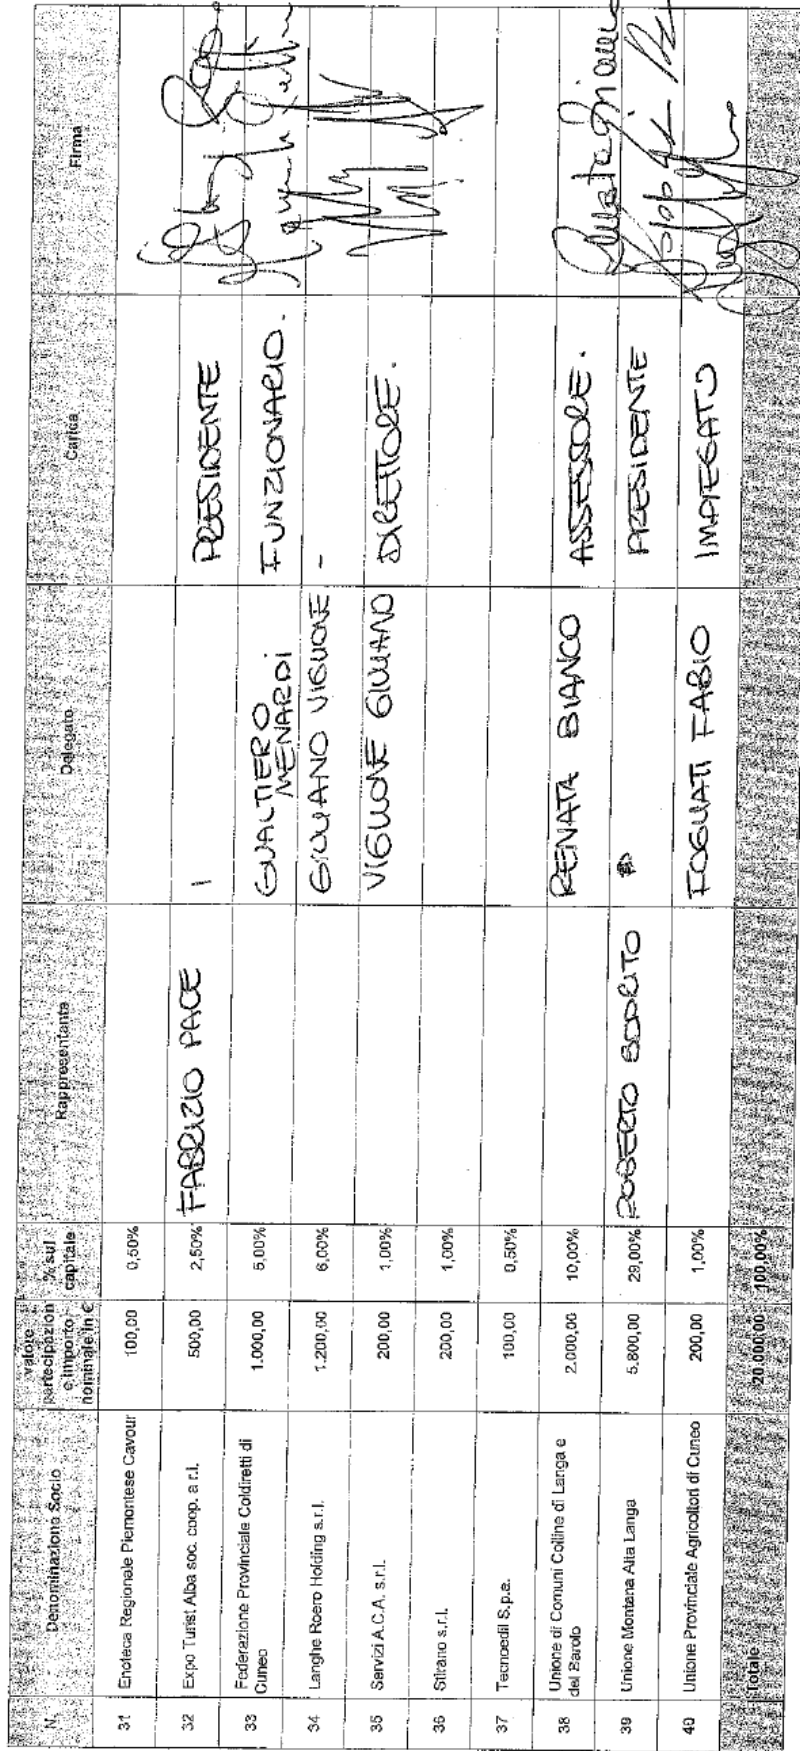 N. Denominazione Socio valore partecipazione importo nominale in € % sul capitale Rappresentante Delegato Carica Firma
31 Enoteca Regionale Piemontese Cavour 100,00 0,50%
32 Expo Turist Alba soc. coop. a r.l. 500,00 2,50% FABRIZIO PACE - PRESIDENTE
33 Federazione Provinciale Coldiretti di Cuneo 1.000,00 5,00% GUALTIERO MENARDI FUNZIONARIO.
34 Langhe Roero Holding s.r.l. 1.200,00 6,00% GIULIANO VIGLIONE - -
35 Servizi A.C.A. s.r.l. 200,00 1,00% VIGLIONE GIULIANO DIRETTORE.
36 Stirano s.r.l. 200,00 1,00%
37 Tecnoedil S.p.a. 100,00 0,50%
38 Unione di Comuni Colline di Langa e del Barolo 2.000,00 10,00% RENATA BIANCO ASSESSORE.
39 Unione Montana Alta Langa 5.800,00 29,00% ROBERTO BODRITO PRESIDENTE
40 Unione Provinciale Agricoltori di Cuneo 200,00 1,00% FOGLIATI FABIO IMPIEGATO
Totale 20.000,00 100,00%